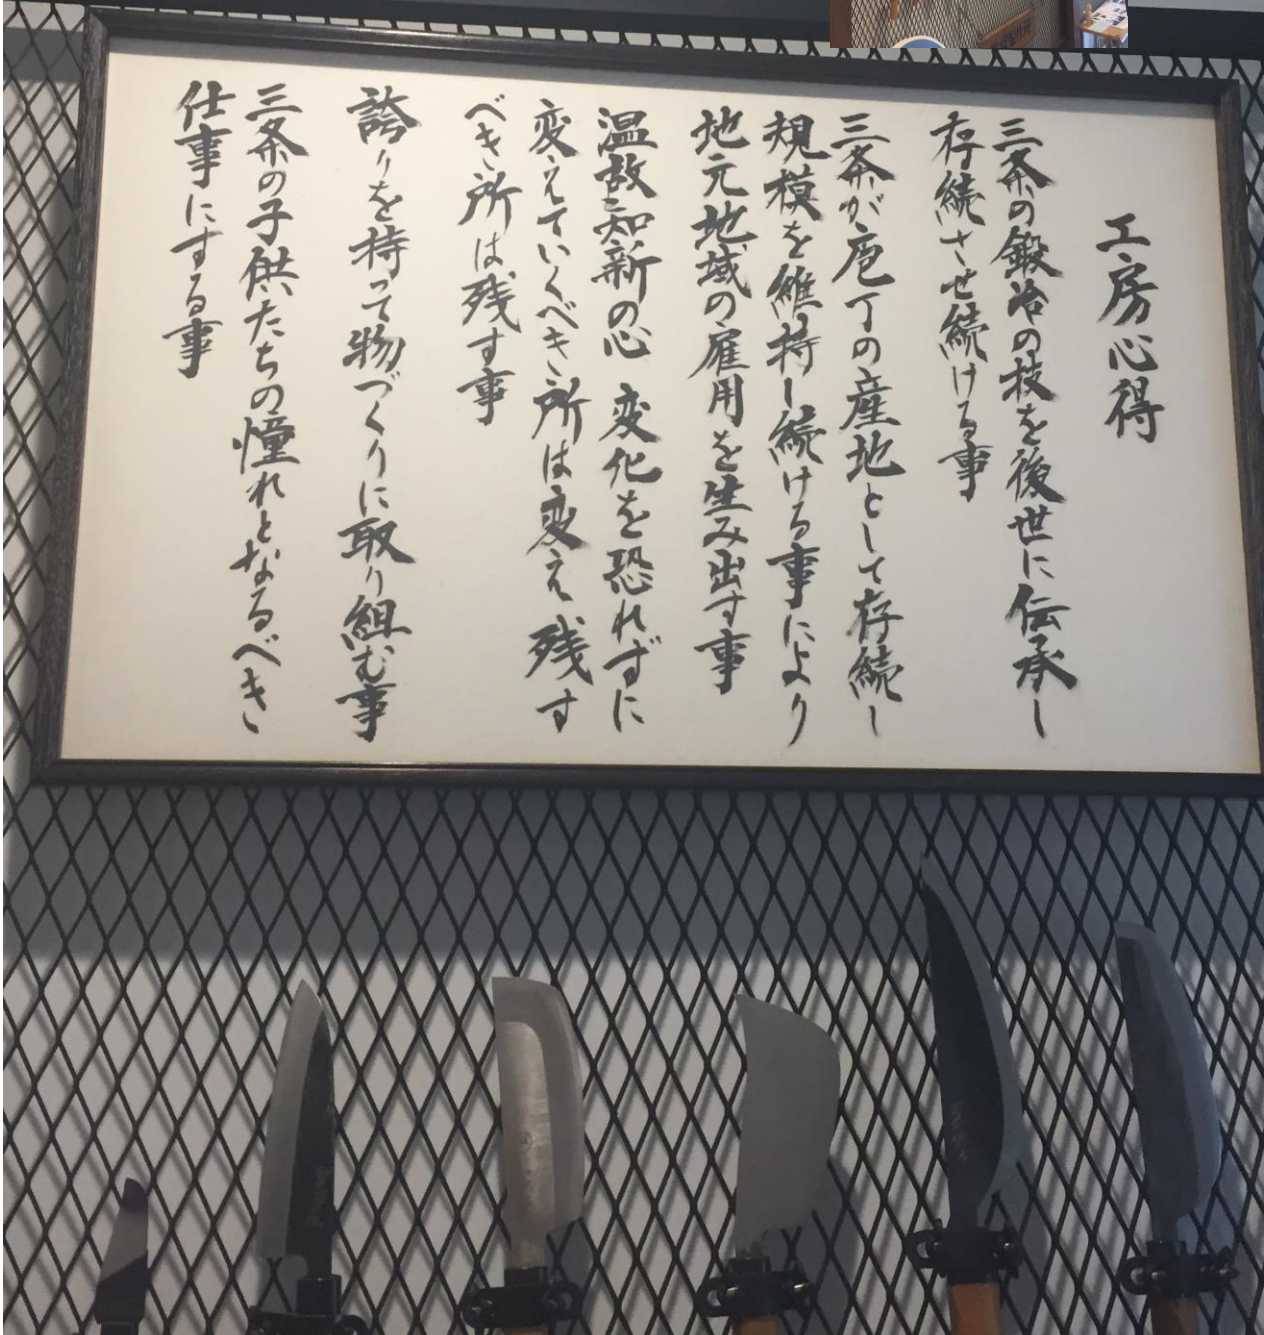 工房心得
三条の鍛冶の技を後世に伝承し
存続させ続ける事
三条が庖丁の産地として存続し
規模を維持し続ける事により
地元地域の雇用を生み出す事
温故知新の心 変化を恐れずに
変えていくべき所は変え 残す
べき所は残す事
誇りを持って物づくりに取り組む事
三条の子供たちの憧れとなるべき
仕事にする事